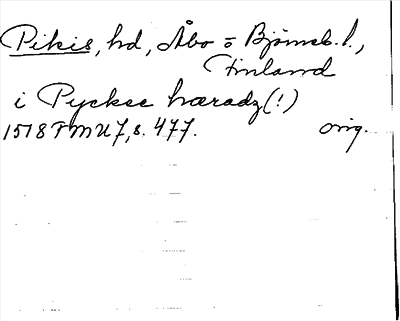 Pikis, hd, Åbo o Björneb. l.,
Finland
i Pyckse hæradz (!)
1518 FMU 7, s. 477. orig.